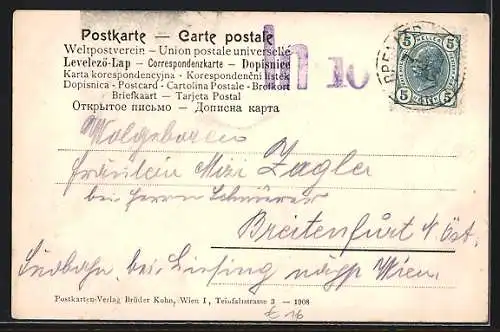 Postkarte — Carte postale
Weltpostverein – Union postale universelle
Levelező-Lap — Correspondenzkarte — Dopisnice
Karta korespondencyjna - Korespondenčni listek
Dopisnica - Postcard - Cartolina Postale - Brefkort
Briefkaart — Tarjeta Postal
Открытое письмо — Дописна карта
n 10
5 HELLER 5
5 5
Wolgeboren
Fräulein Mizi Zagler
bei Herrn
Breitenfurt N. Öst.
Südbahn, bei Liesing nächst Wien.
Postkarten-Verlag Brüder Kohn, Wien I, Teinfaltstrasse 3 — 1908
€ 16